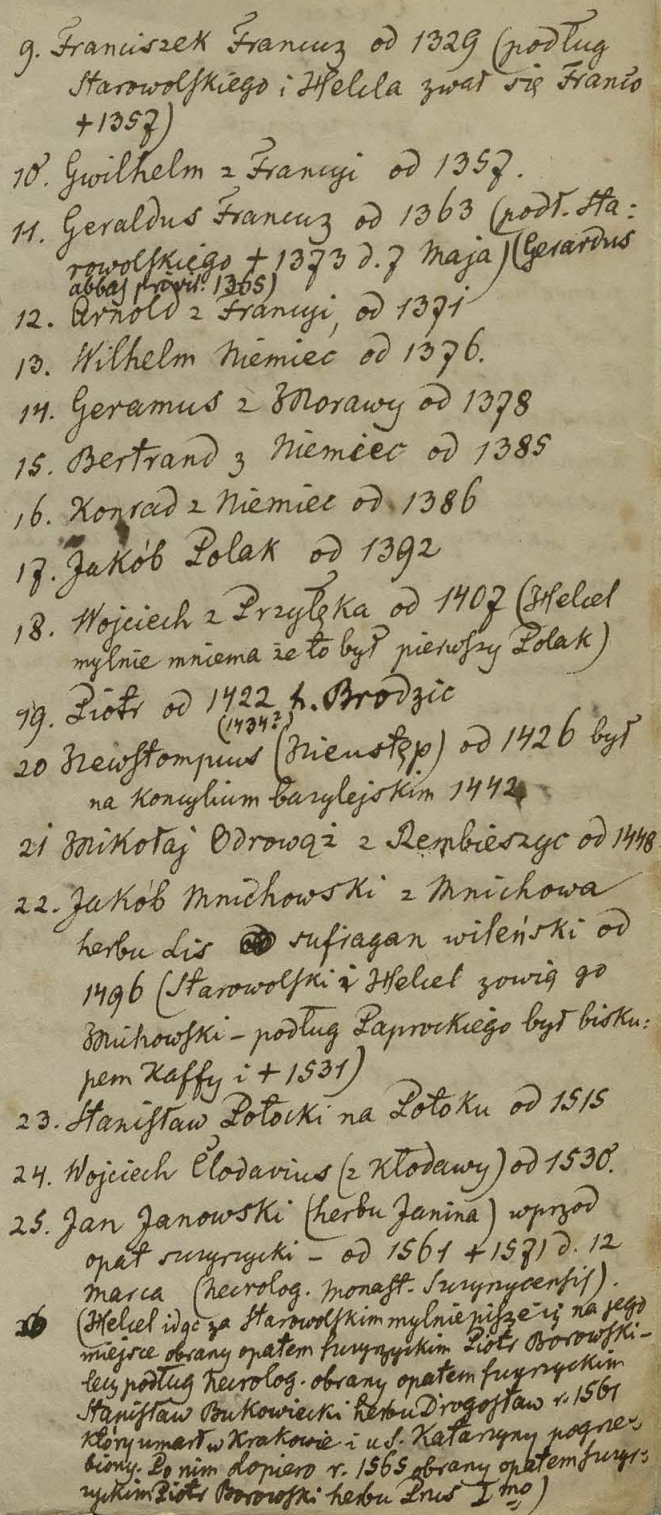 9. Franciszek Francuz od 1329 (podług
Starowolskiego i Helcla zwał się Franco
+ 1357)
10. Gwilhelm z Francyi od 1357.
11. Geraldus Francuz od 1363 (podł. Sta:
rowolskiego + 1373 d. 7 Maja) (Gerardus
abbas 1365)
12. Arnold z Francyi, od 1371
13. Wilhelm Niemiec od 1376.
14. Geramus z Morawy od 1378
15. Bertrand z Niemiec od 1385
16. Konrad z Niemiec od 1386
17. Jakób Polak od 1392
18. Wojciech z Przyłęka od 1407 (Helcel
mylnie mniema że to był pierwszy Polak)
19. Piotr od 1422 h. Brodzic
(1434?)
20 Newstompius (Nieustęp) od 1426 był
na koncylium bazylejskim 1442
21 Mikołaj Odrowąż z Rembieszyc od 1448
22. Jakób Mnichowski z Mnichowa
herbu Lis sufragan wileński od
1496 (Starowolski i Helcel zowią go
Michowski – podług Paprockiego był bisku:
pem Kaffy i + 1531)
23. Stanisław Potocki na Potoku od 1515
24. Wojciech Clodavius (z Kłodawy) od 1530.
25. Jan Janowski (herbu Janina) wprzod
opat sczyrzycki – od 1561 + 1571 d. 12
marca (necrolog. monast. Sczyrzycensis).
26 (Helcel idąc za Starowolskim mylnie pisze iż na jego
miejsce obrany opatem sczyrzyckim Piotr Borowski –
lecz podług necrolog. obrany opatem sczyrzyckim
Stanisław Bukowiecki herbu Drogosław r. 1561
który umarł w Krakowie i u S. Katarzyny pogrze:
biony. Po nim dopiero r. 1565 obrany opatem sczyr:
zyckim Piotr Borowski herbu Prus I mo)